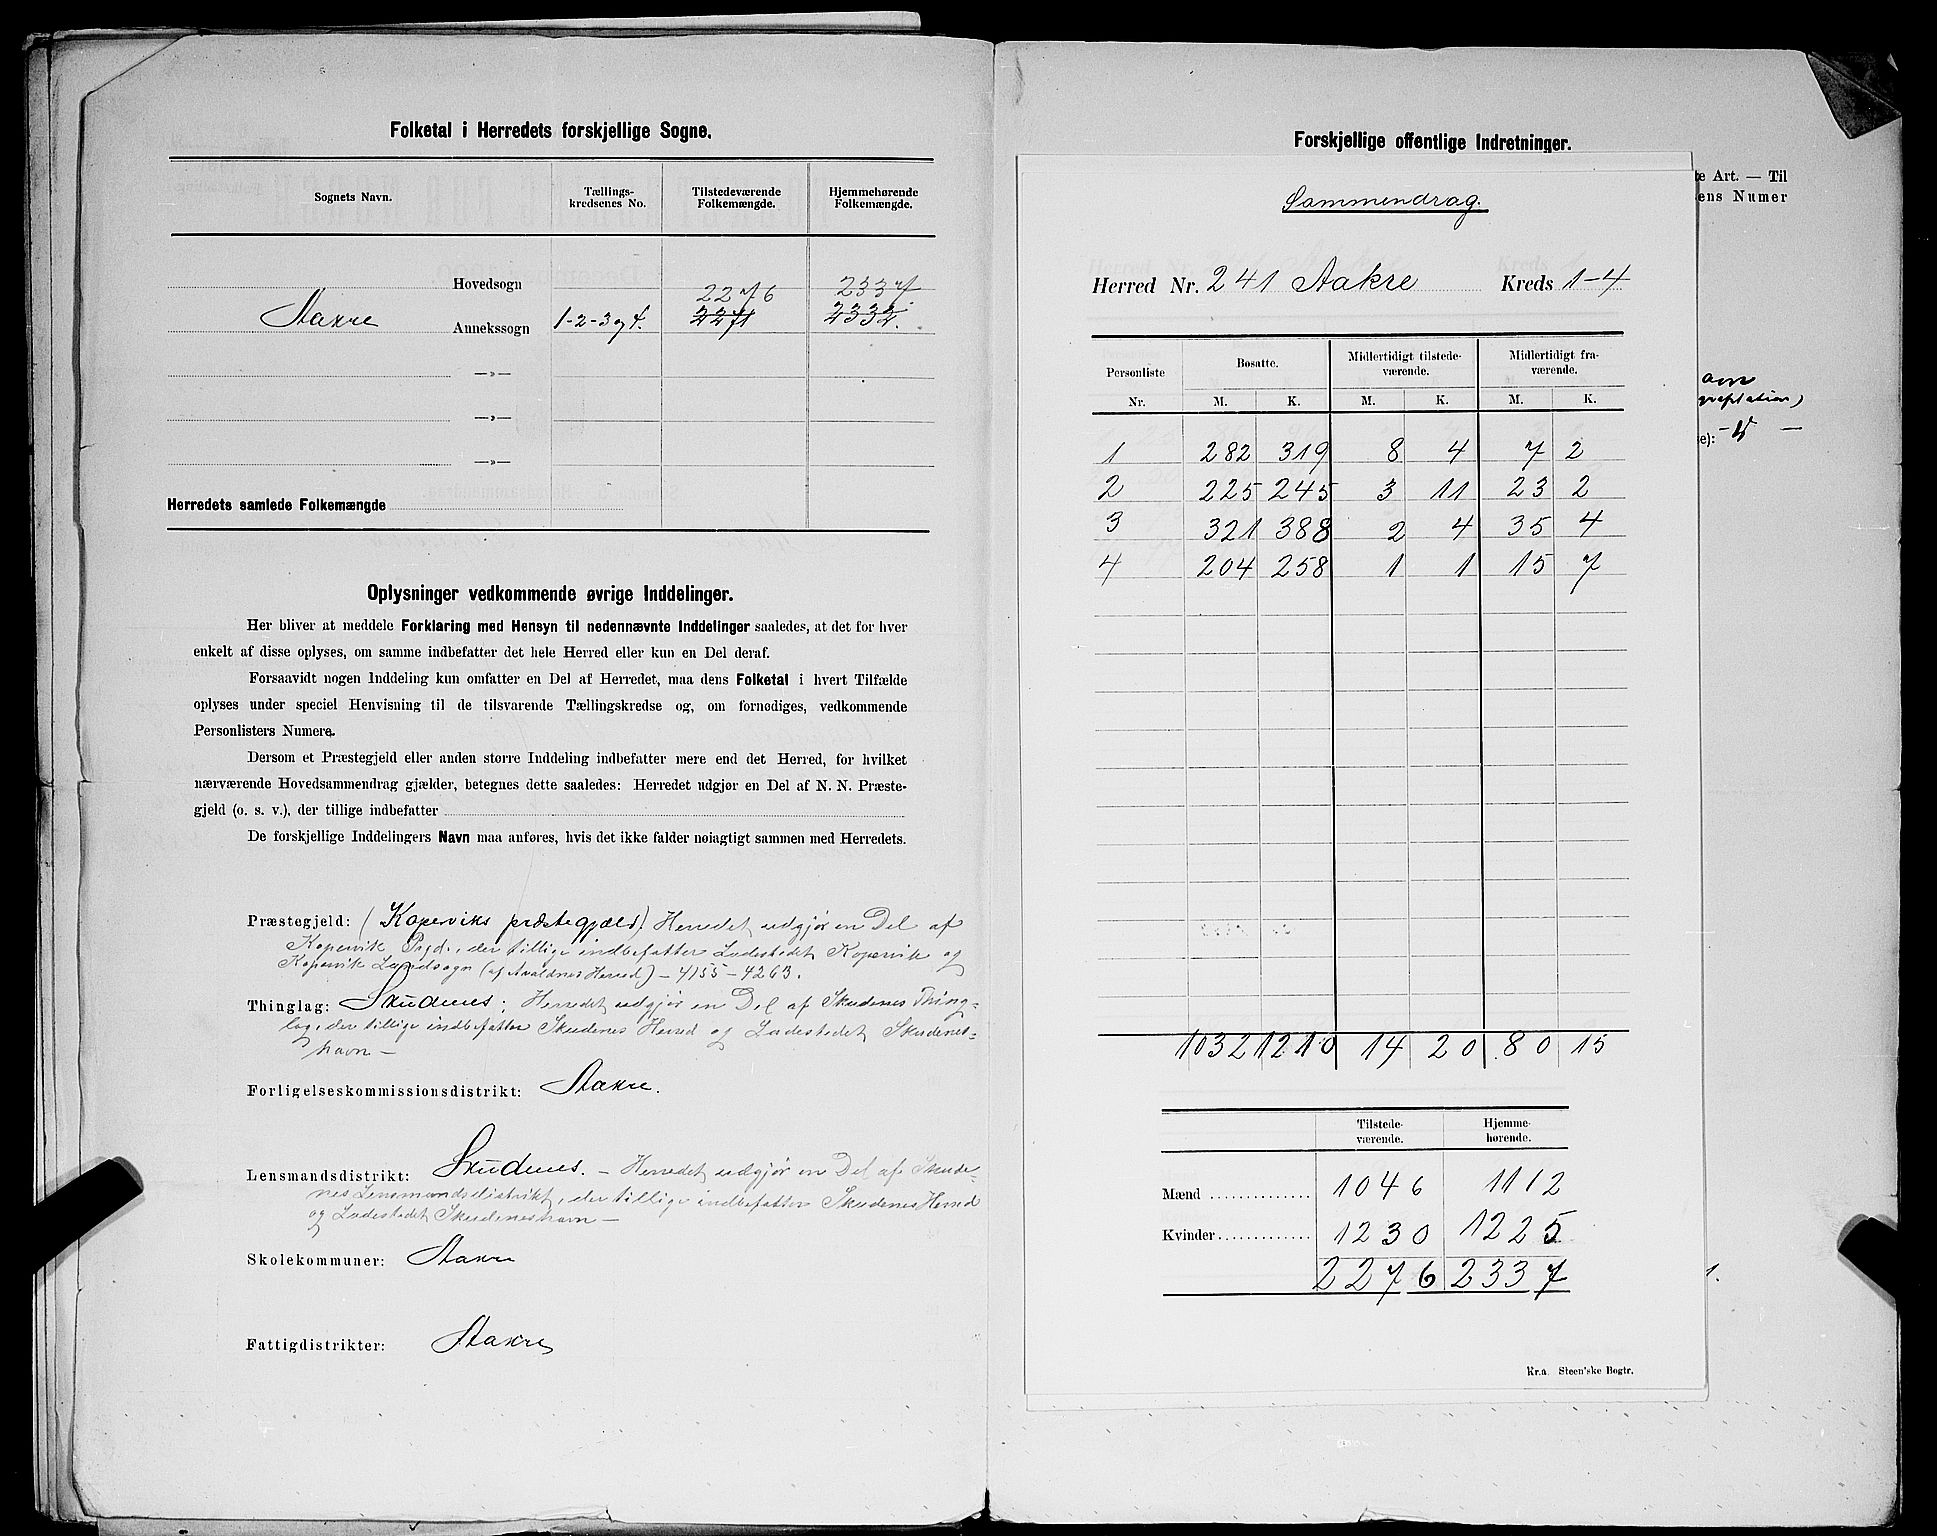 Folketal i Herredets forskjellige Sogne.
Sognets Navn. Tællings-kredsenes No. Tilstedeværende Folkemængde. Hjemmehørende Folkemængde.
Hovedsogn 2276 2337
Aakre Annekssogn 1-2-3 og 4. 2271 2332.
—»—
—»—
—»—
Herredets samlede Folkemængde
Oplysninger vedkommende øvrige Inddelinger.
Her bliver at meddele Forklaring med Hensyn til nedennævnte Inddelinger saaledes, at det for hver
enkelt af disse oplyses, om samme indbefatter det hele Herred eller kun en Del deraf.
Forsaavidt nogen Inddeling kun omfatter en Del af Herredet, maa dens Folketal i hvert Tilfælde
oplyses under speciel Henvisning til de tilsvarende Tællingskredse og, om fornødiges, vedkommende
Personlisters Numere.
Dersom et Præstegjeld eller anden større Inddeling indbefatter mere end det Herred, for hvilket
nærværende Hovedsammendrag gjælder, betegnes dette saaledes: Herredet udgjør en Del af N. N. Præste-
gjeld (o. s. v.), der tillige indbefatter
De forskjellige Inddelingers Navn maa anføres, hvis det ikke falder nøiagtigt sammen med Herredets.
Præstegjeld: (Koperviks præstegjæld) Herredet udgjør en Del af
Kopervik Prgd., der tillige indbefatter Ladestedet Kopervik og
Kopervik Landsogn (af Avaldnes Herred) – 4155 – 4263.
Thinglag: Skudenes; Herredet udgjør en Del af Skudenes Thing-
lag, der tillige indbefatter Skudenes Herred og Ladestedet Skudenes-
havn –
Forligelseskommissionsdistrikt: Aakre.
Lensmandsdistrikt: Skudenes. – Herredet udgjør en Del af Skude-
nes Lensmandsdistrikt, der tillige indbefatter Skudenes Herred
og Ladestedet Skudeneshavn –
Skolekommuner: Aakre
Fattigdistrikter: Aakre
Forskjellige offentlige Indretninger.
te Art. — Til
ens Numer
Sammendrag.
Herred Nr. 241 Aakre Kreds 1-4
Personliste Bosatte. Midlertidigt tilstede-værende. Midlertidigt fra-værende.
Nr. M. K. M. K. M. K.
1 282 319 8 4 7 2
2 225 245 3 11 23 2
3 321 388 2 4 35 4
4 204 258 1 1 15 7
1032 1210 14 20 80 15
Tilstede-værende. Hjemme-hørende.
Mænd 1046 1112
Kvinder 1230 1225
2276 2337
Kr.a. Steen'ske Bogtr.